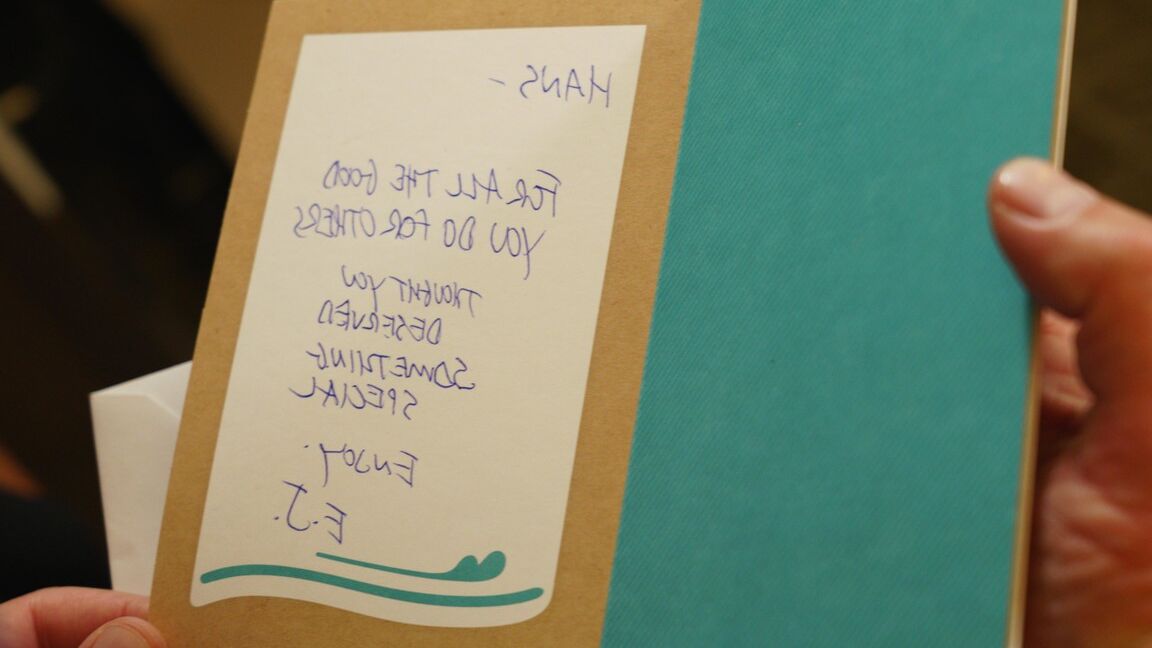 HANS –
FOR ALL THE GOOD
YOU DO FOR OTHERS
THOUGHT YOU
DESERVED
SOMETHING
SPECIAL
ENJOY.
E.J.